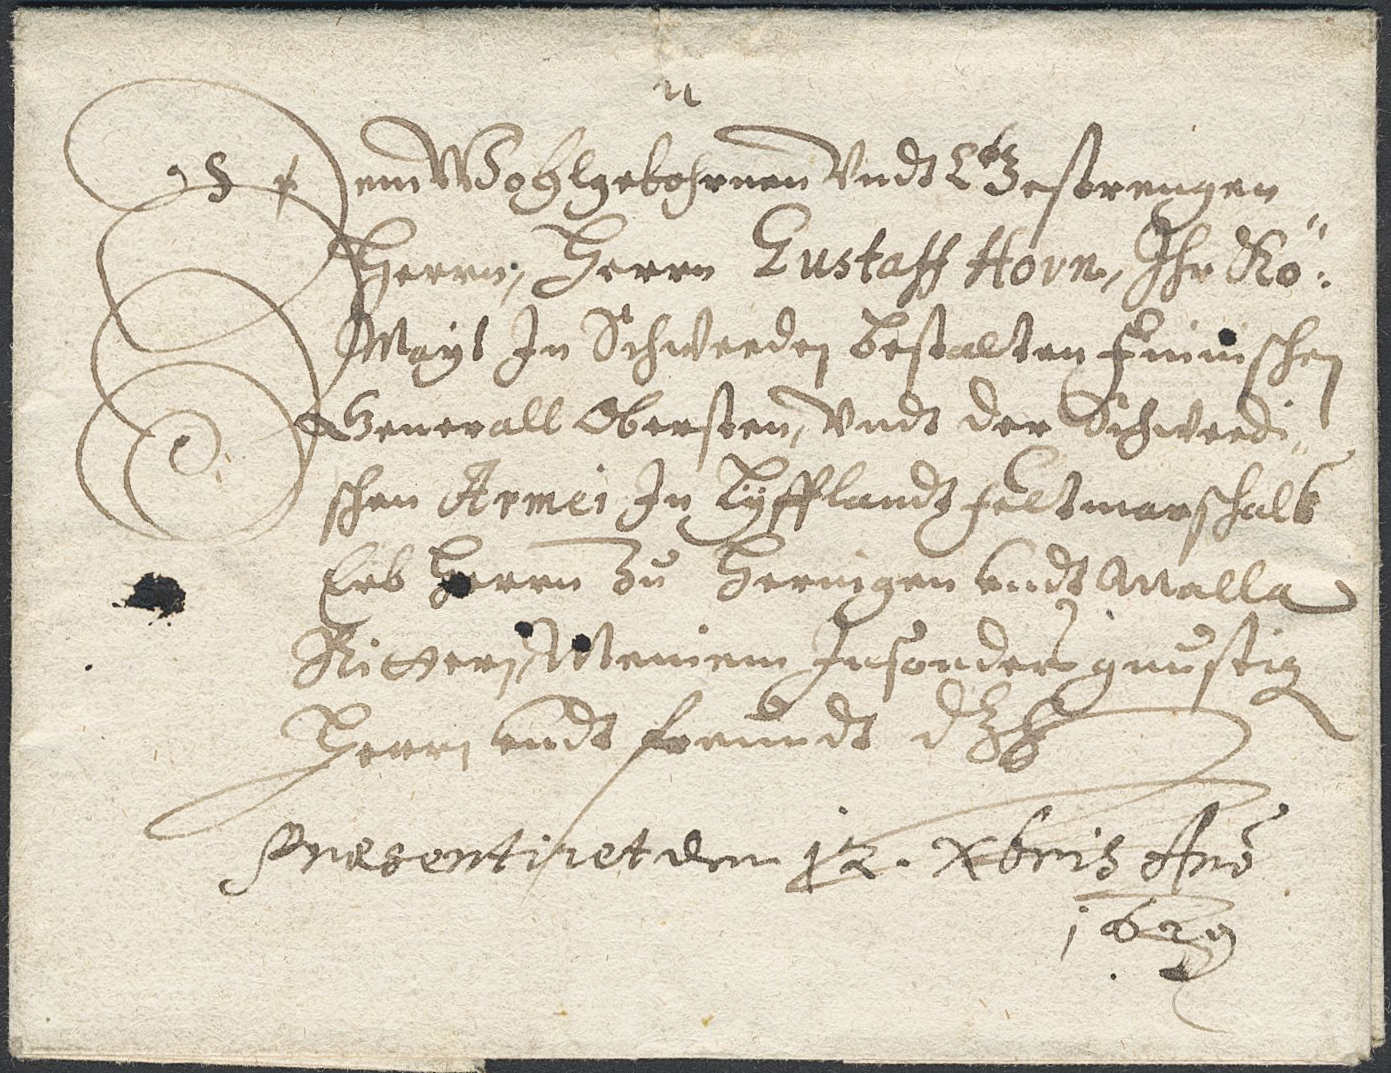 Dem Wohlgebohrnen Vndt Gestrengen
Herrn, Herrn Gustaff Horn, Ihr Kö:
Mayt In Schweden bestalten Finnischen
Generall Obersten, Vndt der Schwedi„
schen Armei In Lyfflandt feltmarschalk
Erb Herrn zu Heringen vndt Malla
Rittern, Meinem Insonders gnustig
Herrn vndt freundt
Præsentiret den 12. Xbris Ano
1629